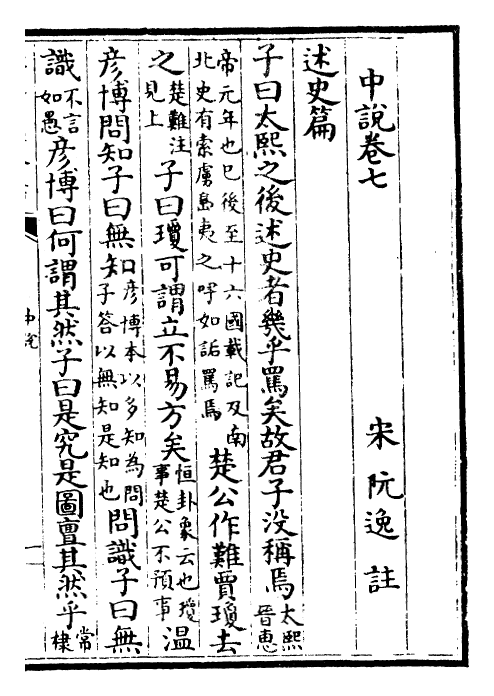 中說卷七
宋阮逸註
述史篇
子曰太熙之後述史者幾乎罵矣故君子沒稱焉太熙晉惠
帝元年也已後至十六國載記及南北史有索虜島夷之呼如詬罵焉楚公作難賈瓊去
之楚難注見上子曰瓊可謂立不易方矣恒卦象云也瓊事楚公不預事溫
彥博問知子曰無知彥博本以多知為問子答以無知是知也問識子曰無
識不言如愚彥博曰何謂其然子曰是究是圖亶其然乎常棣
中說